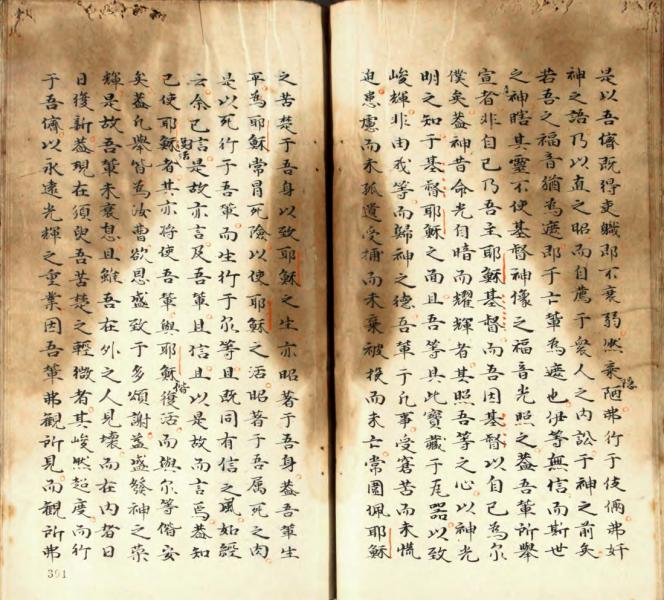 是以吾儕既得吏職即不衰弱然棄陋弗行于伎倆弗奸
隱
神之語乃以直之昭而自薦于衆人之内訟于神之前矣
若吾之福音猶為遮即于亡輩為遮也伊等無信而斯世
之神瞎其靈不使基督神像之福音光照之蓋吾輩所舉
宣者非自己乃吾主耶穌基督而吾因基督以自己為尔
僕矣蓋神昔命光自暗而耀輝者其照吾等之心以神光
明之知于基督耶穌之面且吾等具此寶藏于瓦器以致
峻輝非由我等而歸神之德吾輩于凡事受窘苦而未慌
迫患慮而未孤遺受捕而未棄被投而未亡常圍佩耶穌
之苦楚于吾身以致耶穌之生亦昭著于吾身蓋吾輩生
平為耶穌常冒死險以使耶穌之活昭著于吾属死之肉
是以死行于吾輩而生行于尔等且既同有信之風如經
云余已信是故亦言及吾輩且信且以是故而言焉蓋知
已使耶穌者其亦将使吾輩與耶穌復活而與尔等偕安
復活
偕
矣蓋凡舉皆為汝曹欲恩盛致于多頌謝蓋盛發神之榮
輝是故吾輩未衰怠且雖吾在外之人見壞而在内者日
日復新蓋現在須臾吾苦楚之輕微者其峻然超度而行
于吾儕以永遠光輝之重業因吾輩弗觀所見而觀所弗
301